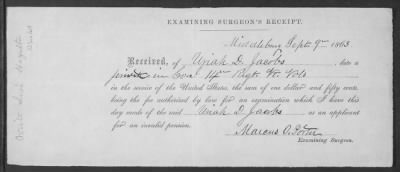 EXAMINING SURGEON'S RECEIPT.
Middlebury Sept. 9th 1863.
Received, of Uriah D. Jacobs, late a
private in Co. 14th Regt. Vt. Vols
in the service of the United States, the sum of one dollar and fifty cents,
being the fee authorized by law for an examination which I have this
day made of the said Uriah D. Jacobs as an applicant
for an invalid pension.
Marcus O. Porter
Examining Surgeon.